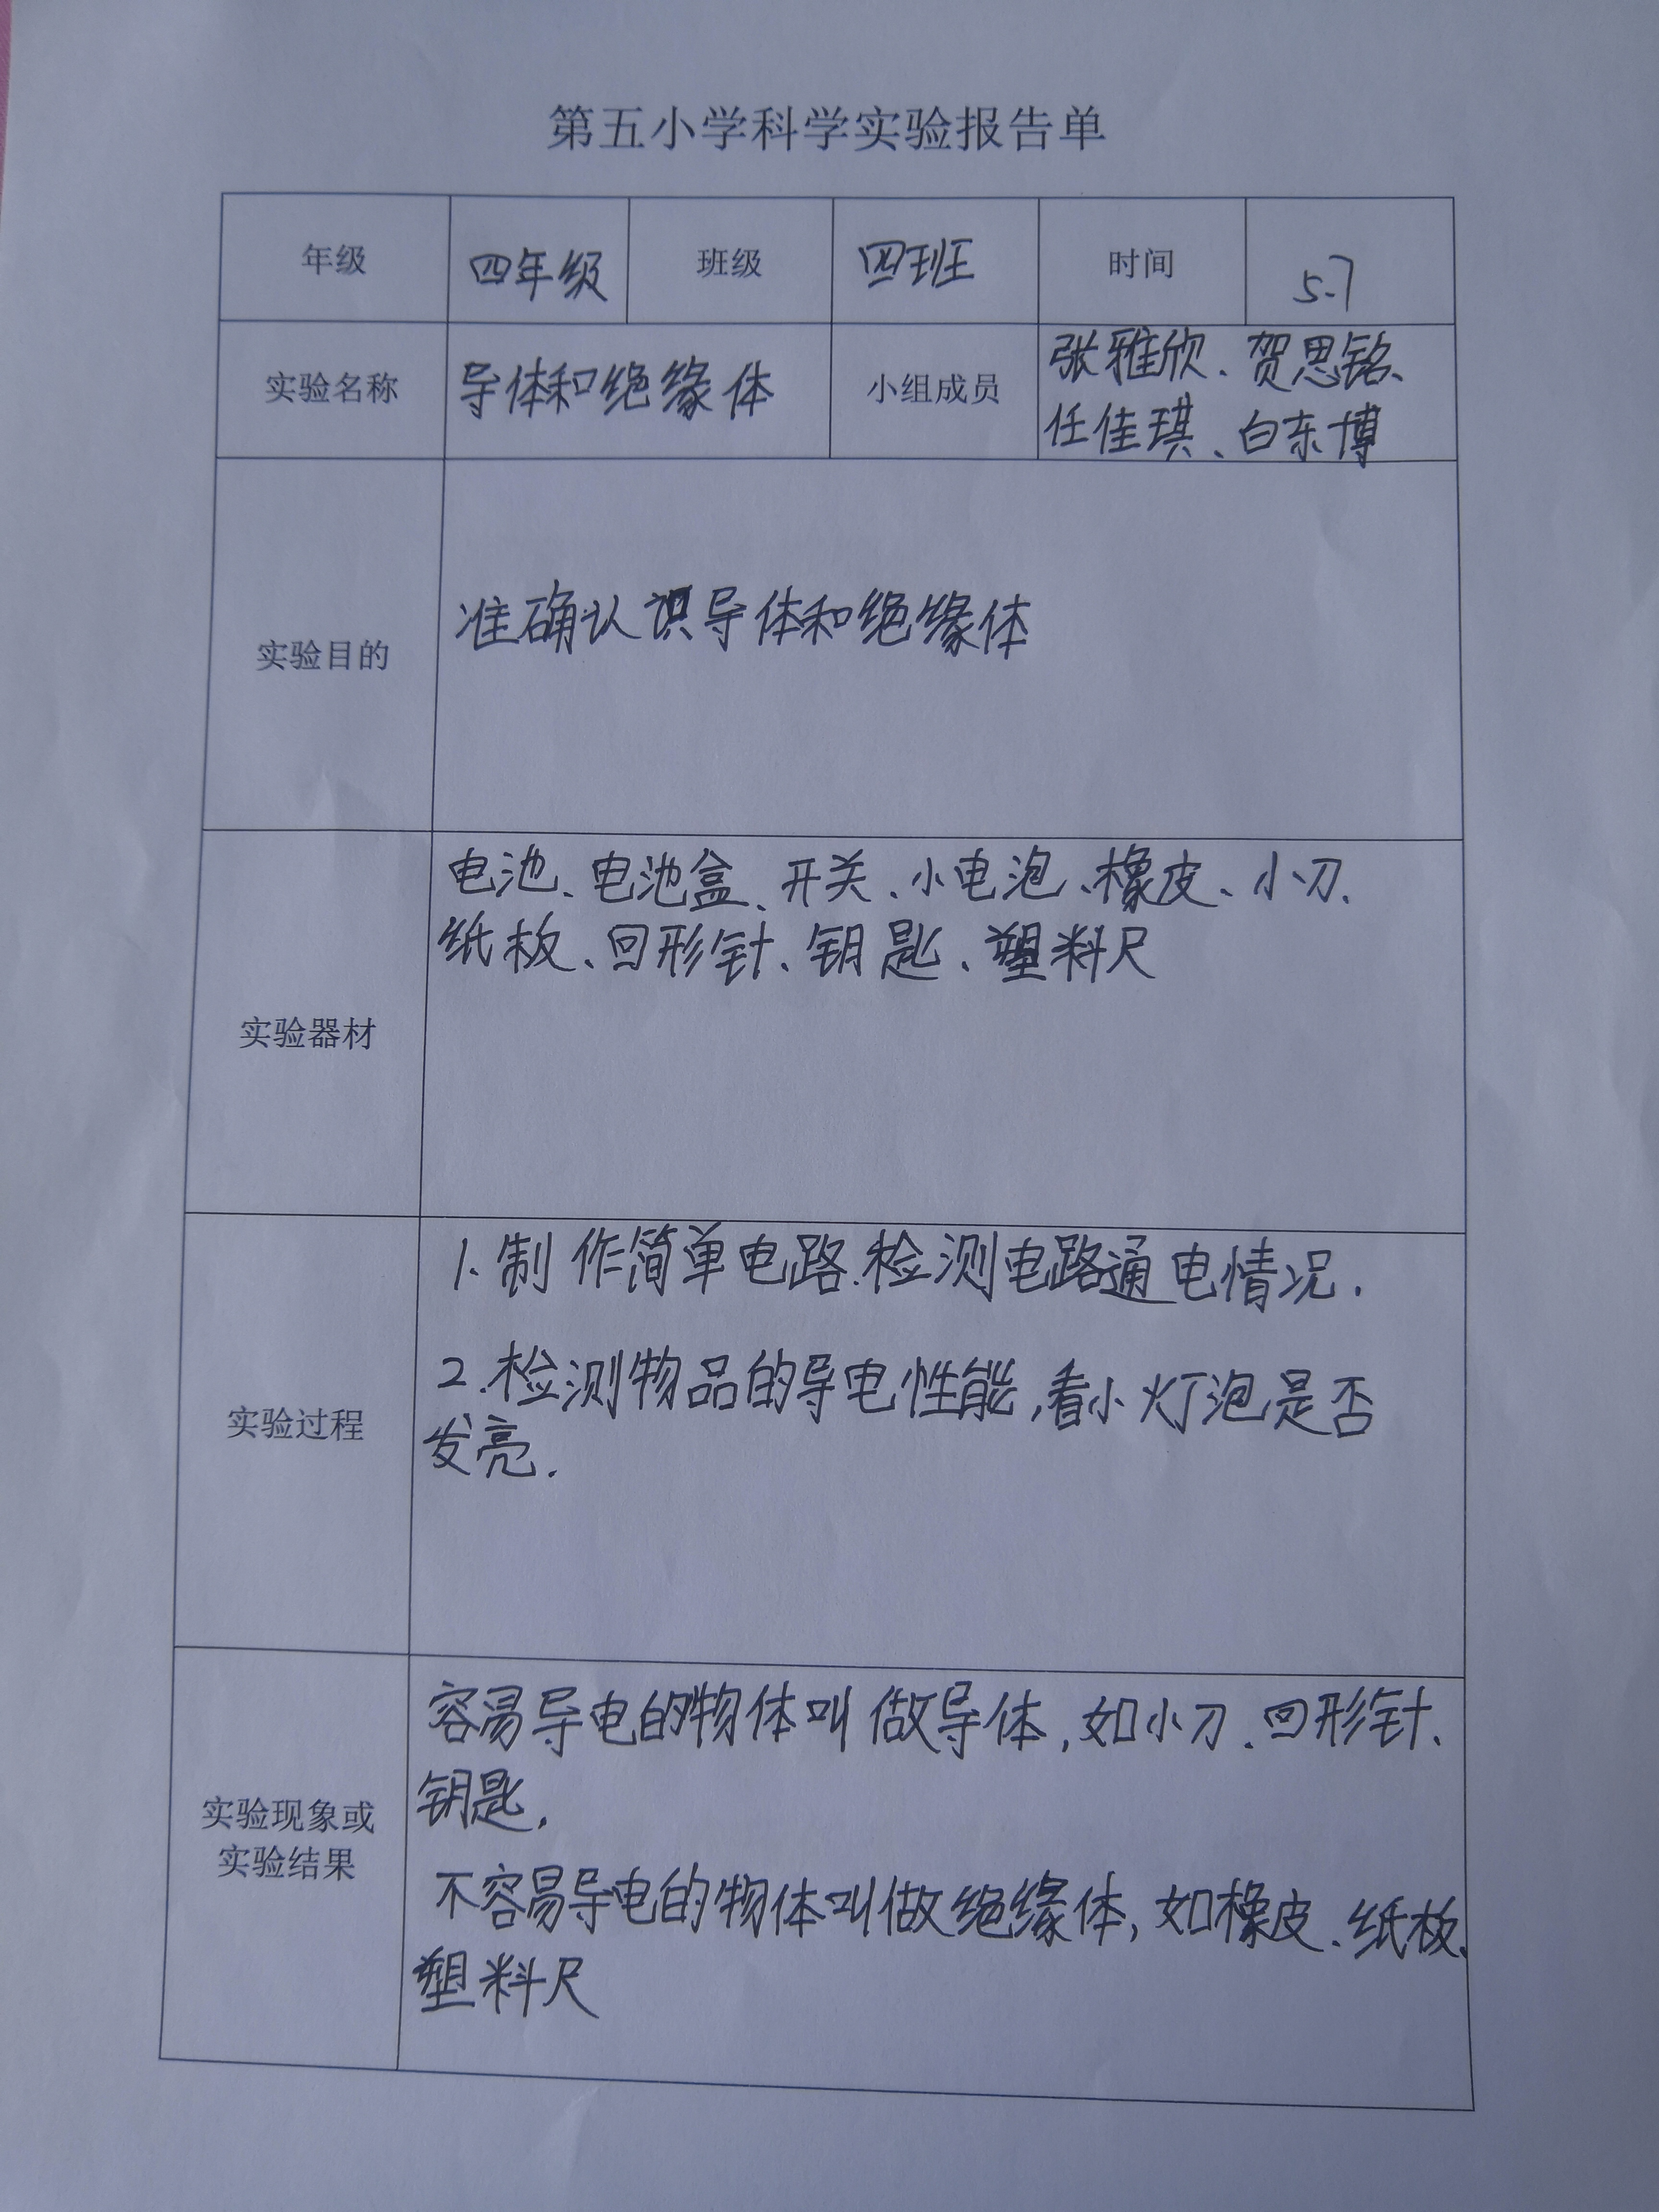 第五小学科学实验报告单
年级 四年级 班级 四班 时间 5.7
实验名称 导体和绝缘体 小组成员 张雅欣、贺思铭、
任佳琪、白东博
实验目的 准确认识导体和绝缘体
电池、电池盒、开关、小电泡、橡皮、小刀.
纸板、回形针、钥匙、塑料尺
实验器材
1.制作简单电路.检测电路通电情况.
2.检测物品的导电性能,看小灯泡是否
实验过程
发亮.
容易导电的物体叫做导体,如小刀.回形针、
钥匙.
实验现象或
实验结果
不容易导电的物体叫做绝缘体,如橡皮.纸板、
塑料尺